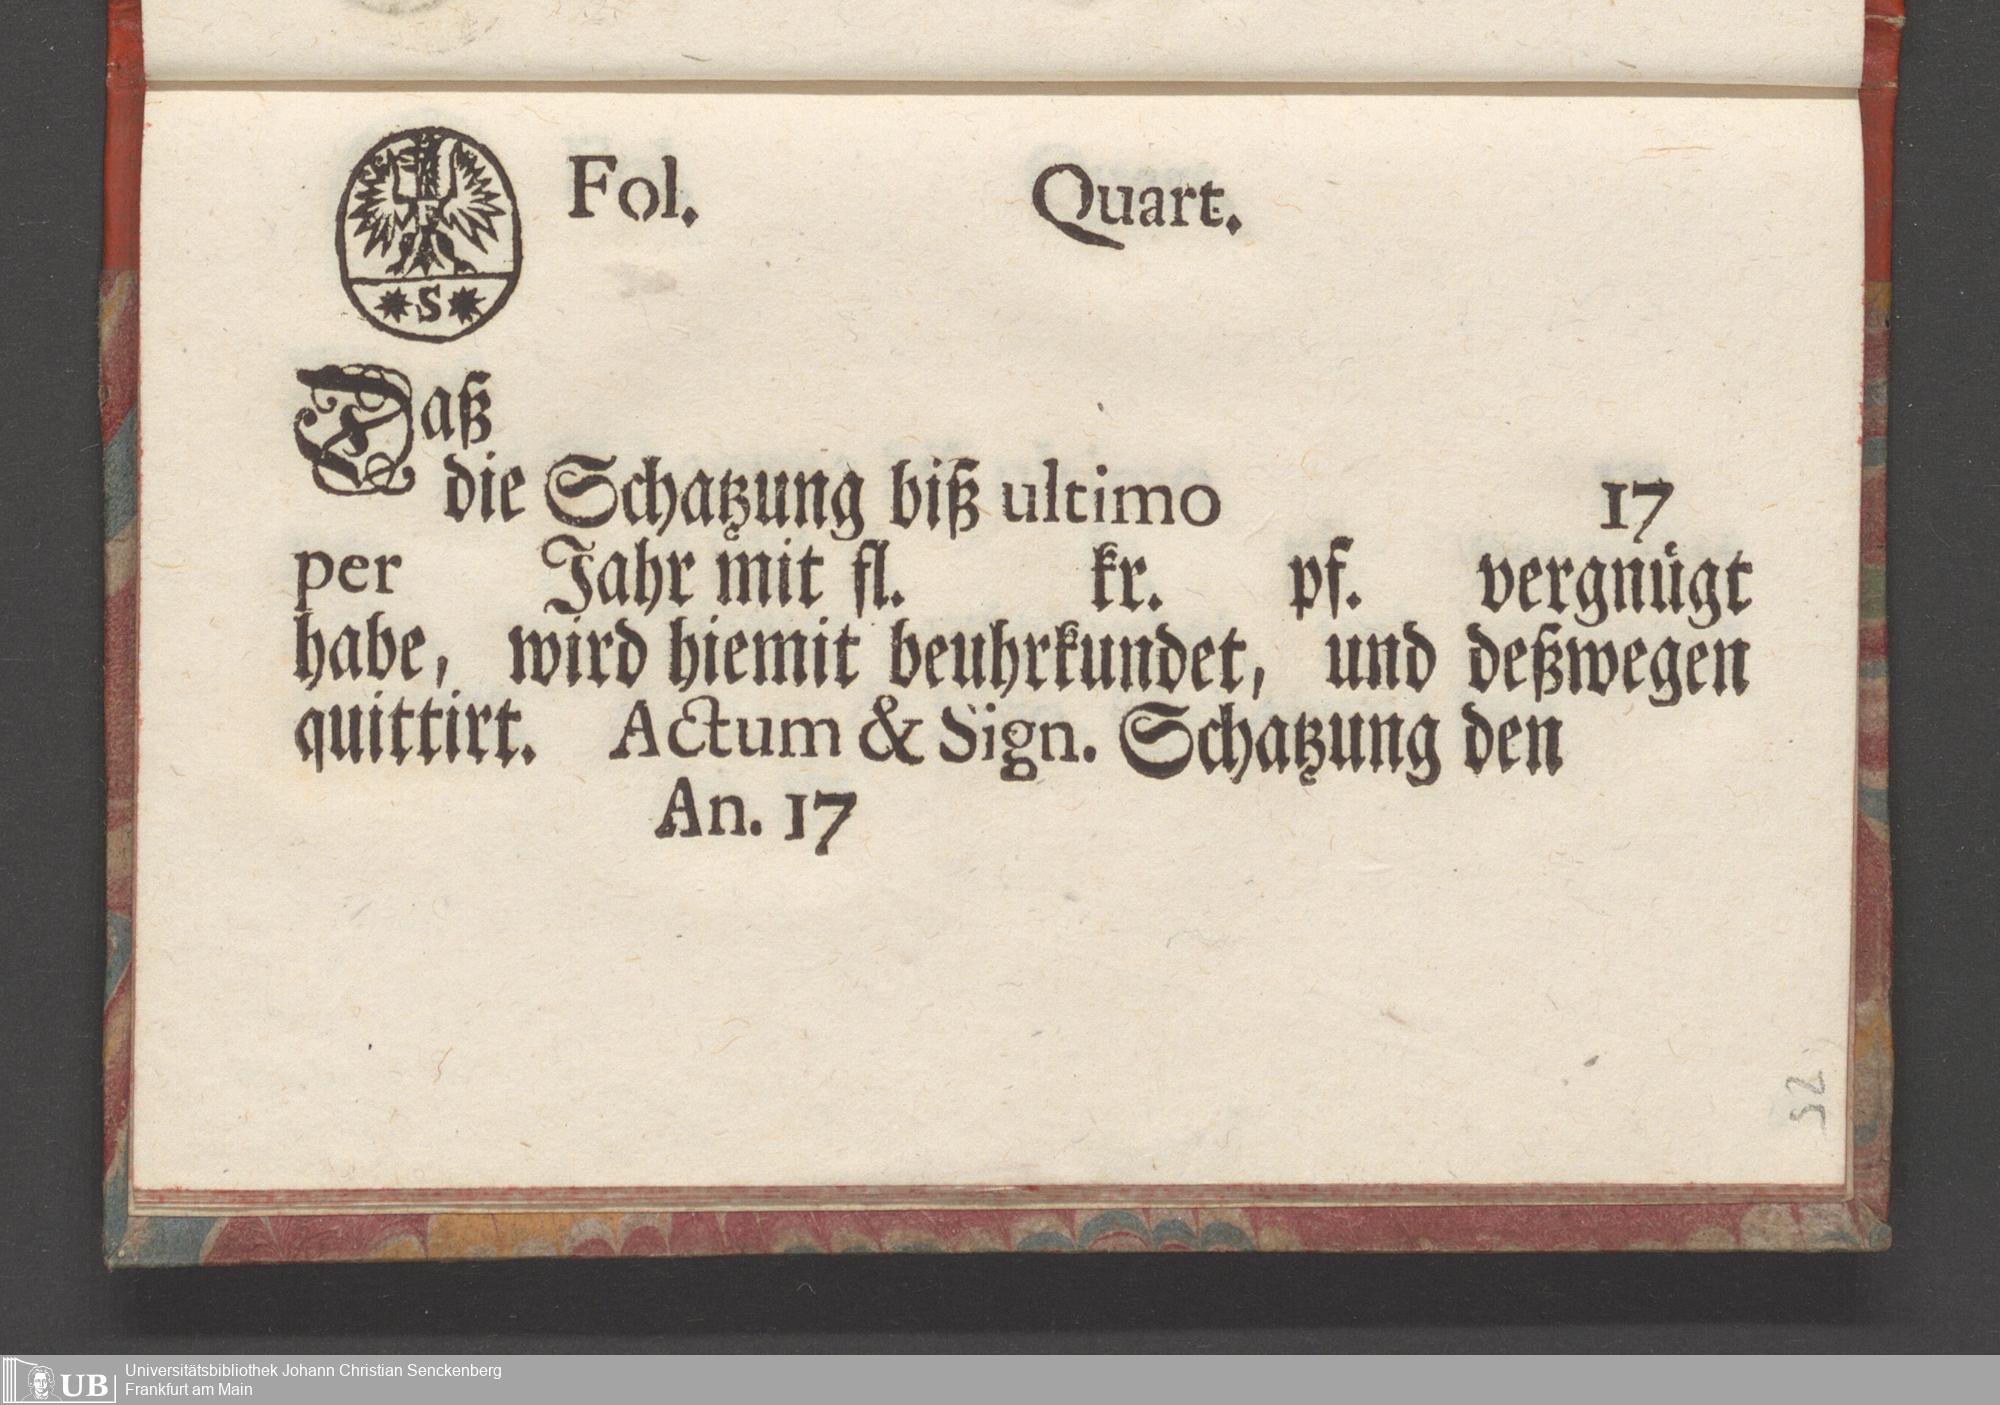 Fol. Quart.
*S*
Daß
die Schatzung biß ultimo 17
per Jahr mit fl. kr. pf. vergnügt
habe, wird hiemit beuhrkundet, und deßwegen
quittirt. Actum & Sign. Schatzung den
An. 17
32
UB
Universitätsbibliothek Johann Christian Senckenberg
Frankfurt am Main